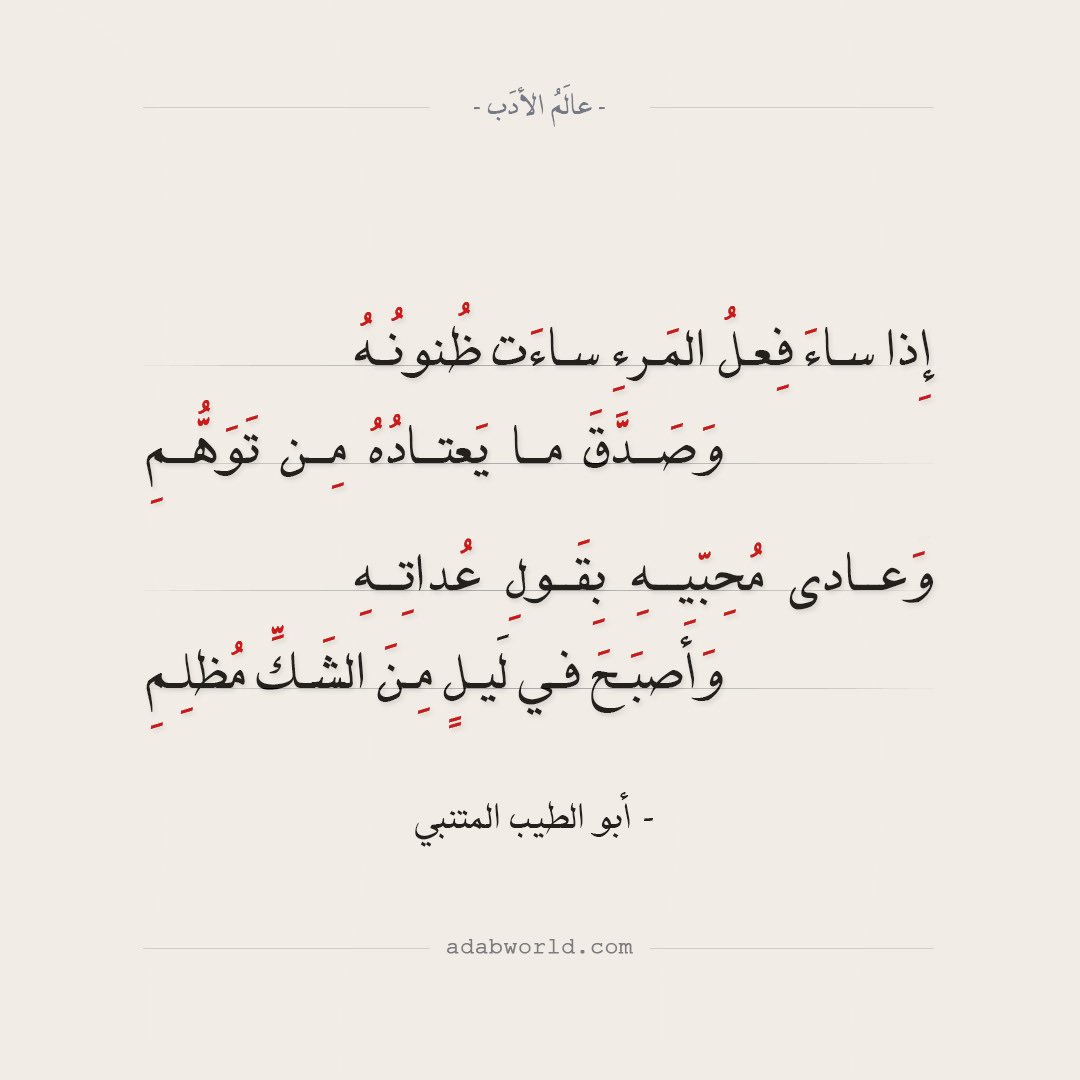 - عالَمُ الأدَب -
إِذا ساءَ فِعلُ المَرءِ ساءَت ظُنونُهُ
وَصَدَّقَ ما يَعتادُهُ مِن تَوَهُّمِ
وَعادى مُحِبّيهِ بِقَولِ عُداتِهِ
وَأَصبَحَ في لَيلٍ مِنَ الشَكِّ مُظلِمِ
- أبو الطيب المتنبي
adabworld.com